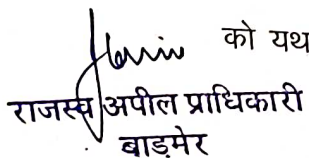 को यथ
राजस्व अपील प्राधिकारी
बाड़मेर